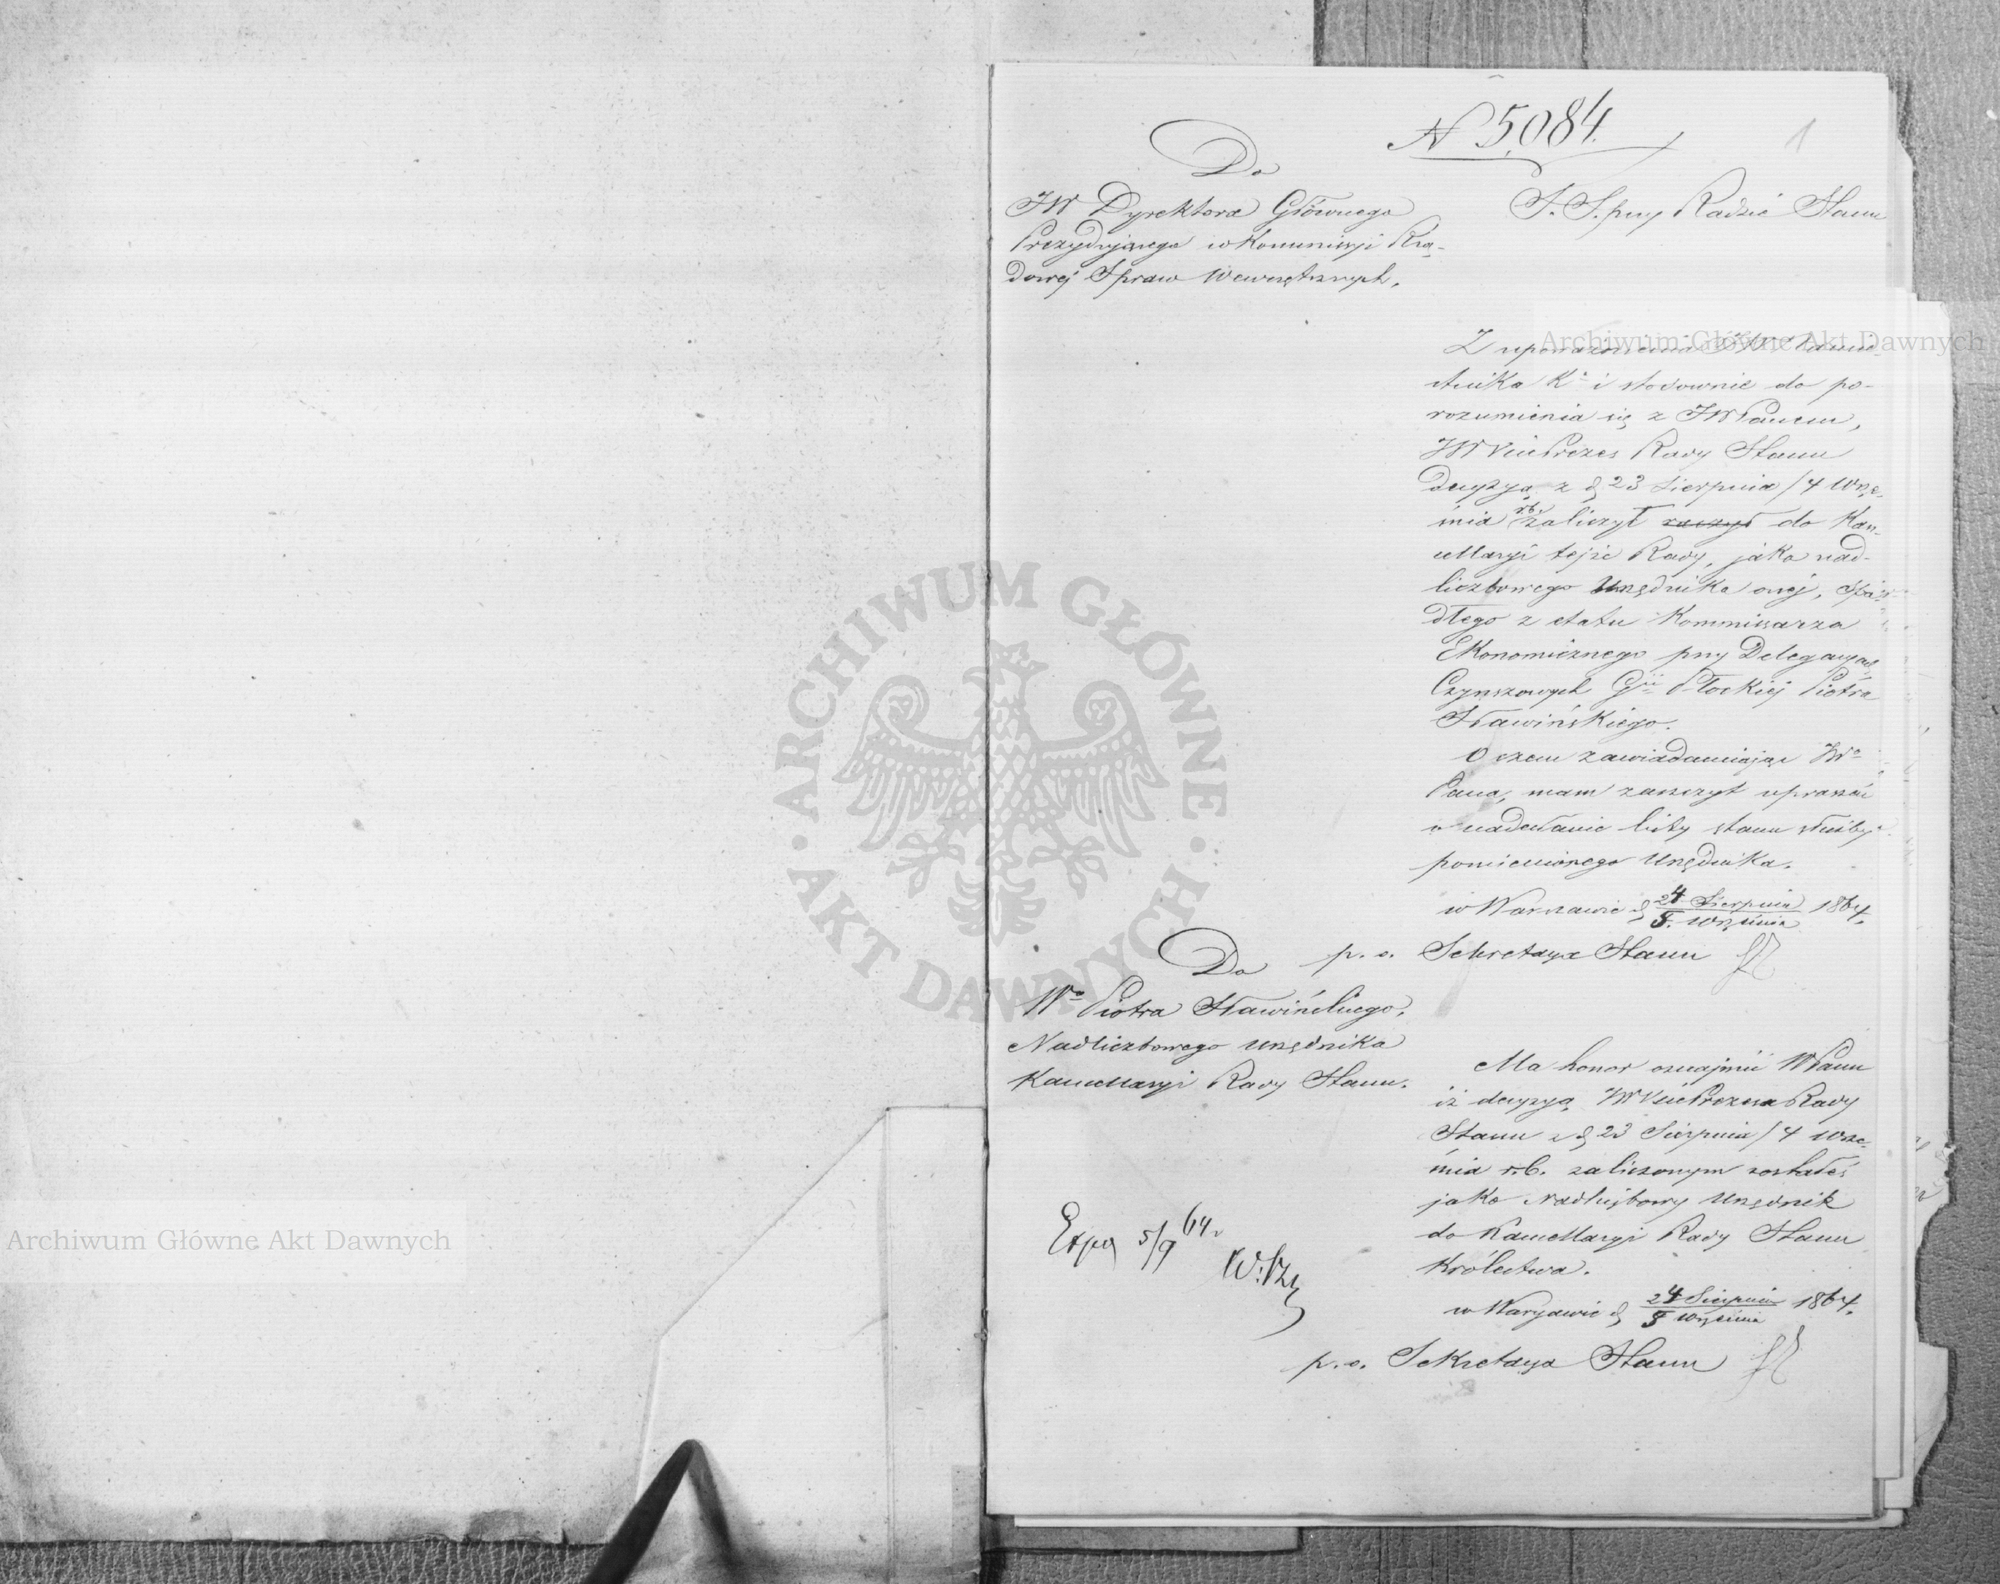 N 5,084.
1
Do
JW Dyrektora Głównego
Prezydującego w Kommissyi Rzą-
dowej Spraw Wewnętrznych.
S. S. przy Radzie Stanu
Z upoważnienia JW. Namie-
stnika Kr i stosownie do po-
rozumienia się z JWPanem,
JW VicePrezes Rady Stanu
decyzyą z d 23 Sierpnia / 4 Wrze-
śnia r.b. zaliczył raczył do Kan-
cellaryi tejże Rady, jako nad-
liczbowego Urzędnika onej, spa-
dłego z etatu Kommissarza
Ekonomicznego przy Delegacyach
Czynszowych Gii Płockiej Piotra
Sławińskiego.
O czem zawiadamiając JWo
Pana, mam zaszczyt upraszać
o nadesłanie listy stanu służby
pomienionego Urzędnika.
w Warszawie d 24 Sierpnia 1864.
5. Września
p. o. Sekretarza Stanu
Do
Wo Piotra Sławińskiego,
Nadliczbowego Urzędnika
Kancellaryi Rady Stanu.
Ma honor oznajmić WPanu
iż decyzyą JW VicePrezesa Rady
Stanu z d 23 Sierpnia / 4 Wrze-
śnia r.b. zaliczonym zostałeś
jako Nadliczbowy Urzędnik
do Kancellaryi Rady Stanu
Królestwa.
w Warszawie d 24 Sierpnia 1864.
5 Września
p. o. Sekretarza Stanu
Exp 5/9 64.
Archiwum Główne Akt Dawnych
Archiwum Główne Akt Dawnych
ARCHIWUM GŁÓWNE
AKT DAWNYCH